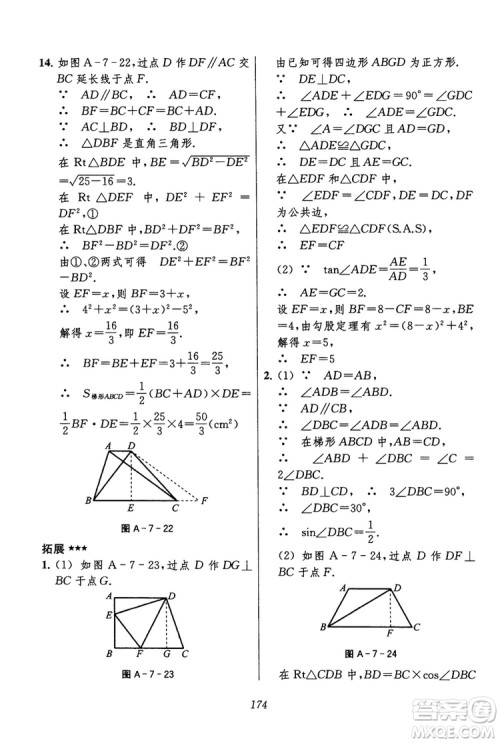 14. 如图 A-7-22,过点 D 作 DF∥AC 交
BC 延长线于点 F.
∵ AD∥BC, ∴ AD=CF
∴ BF=BC+CF=BC+AD
∵ AC⊥BD, ∴ DF⊥BD
∴ △DBF 是直角三角形.
在 Rt△BDE 中,BE=√(BD²-DE²)
=√(25-16)=3.
在 Rt △DEF 中,DE²+EF²=
DF²,①
在 Rt△DBF 中,BD²+DF²=BF²
∴ BF²-BD²=DF².②
由①、②两式可得 DE²+EF²=
BF²-BD².
设 EF=x,则 BF=3+x,
∴ 4²+x²=(3+x)²-5²
解得 x=16/3,即 EF=16/3.
∴ BF=BE+EF=3+16/3=25/3
∴ S梯形ABCD=1/2(BC+AD)×DE=
1/2BF·DE=1/2×25/3×4=50/3(cm²)
A D
B E C F
图 A-7-22
拓展 ★★★
1. (1) 如图 A-7-23,过点 D 作 DG⊥
BC 于点 G.
A D
E
B F G C
图 A-7-23
由已知可得四边形 ABGD 为正方形.
∵ DE⊥DC,
∴ ∠ADE+∠EDG=90°=
∠GDC+∠EDG
∴ ∠ADE=∠GDC
又∵ ∠A=∠DGC 且 AD=GD
∴ △ADE≌△GDC
∴ DE=DC 且 AE=GC.
在△EDF 和△CDF 中,
∠EDF=∠CDF,DE=DC,DF
为公共边,
∴ △EDF≌△CDF(S.A.S)
∴ EF=CF
(2) ∵ tan∠ADE=AE/AD=1/3,
∴ AE=GC=2.
设 EF=x,则 BF=8-CF=8-x,
BE=4,由勾股定理有 x²=(8-x)²+4²,
解得:x=5.
∴ EF=5
2. (1) ∵ AD=AB,
∴ ∠ADB=∠ABD
∵ AD∥CB,
∴ ∠DBC=∠ADB=∠ABD
∵ 在梯形 ABCD 中,AB=CD,
∴ ∠ABD+∠DBC=∠C=2∠DBC
∵ BD⊥CD ∴ 3∠DBC=90°
∴ ∠DBC=30°
∴ sin∠DBC=1/2
(2) 如图 A-7-24,过点 D 作 DF⊥
BC 于点 F.
A D
B F C
图 A-7-24
在 Rt△CDB 中,BD=BC×cos∠DBC
174